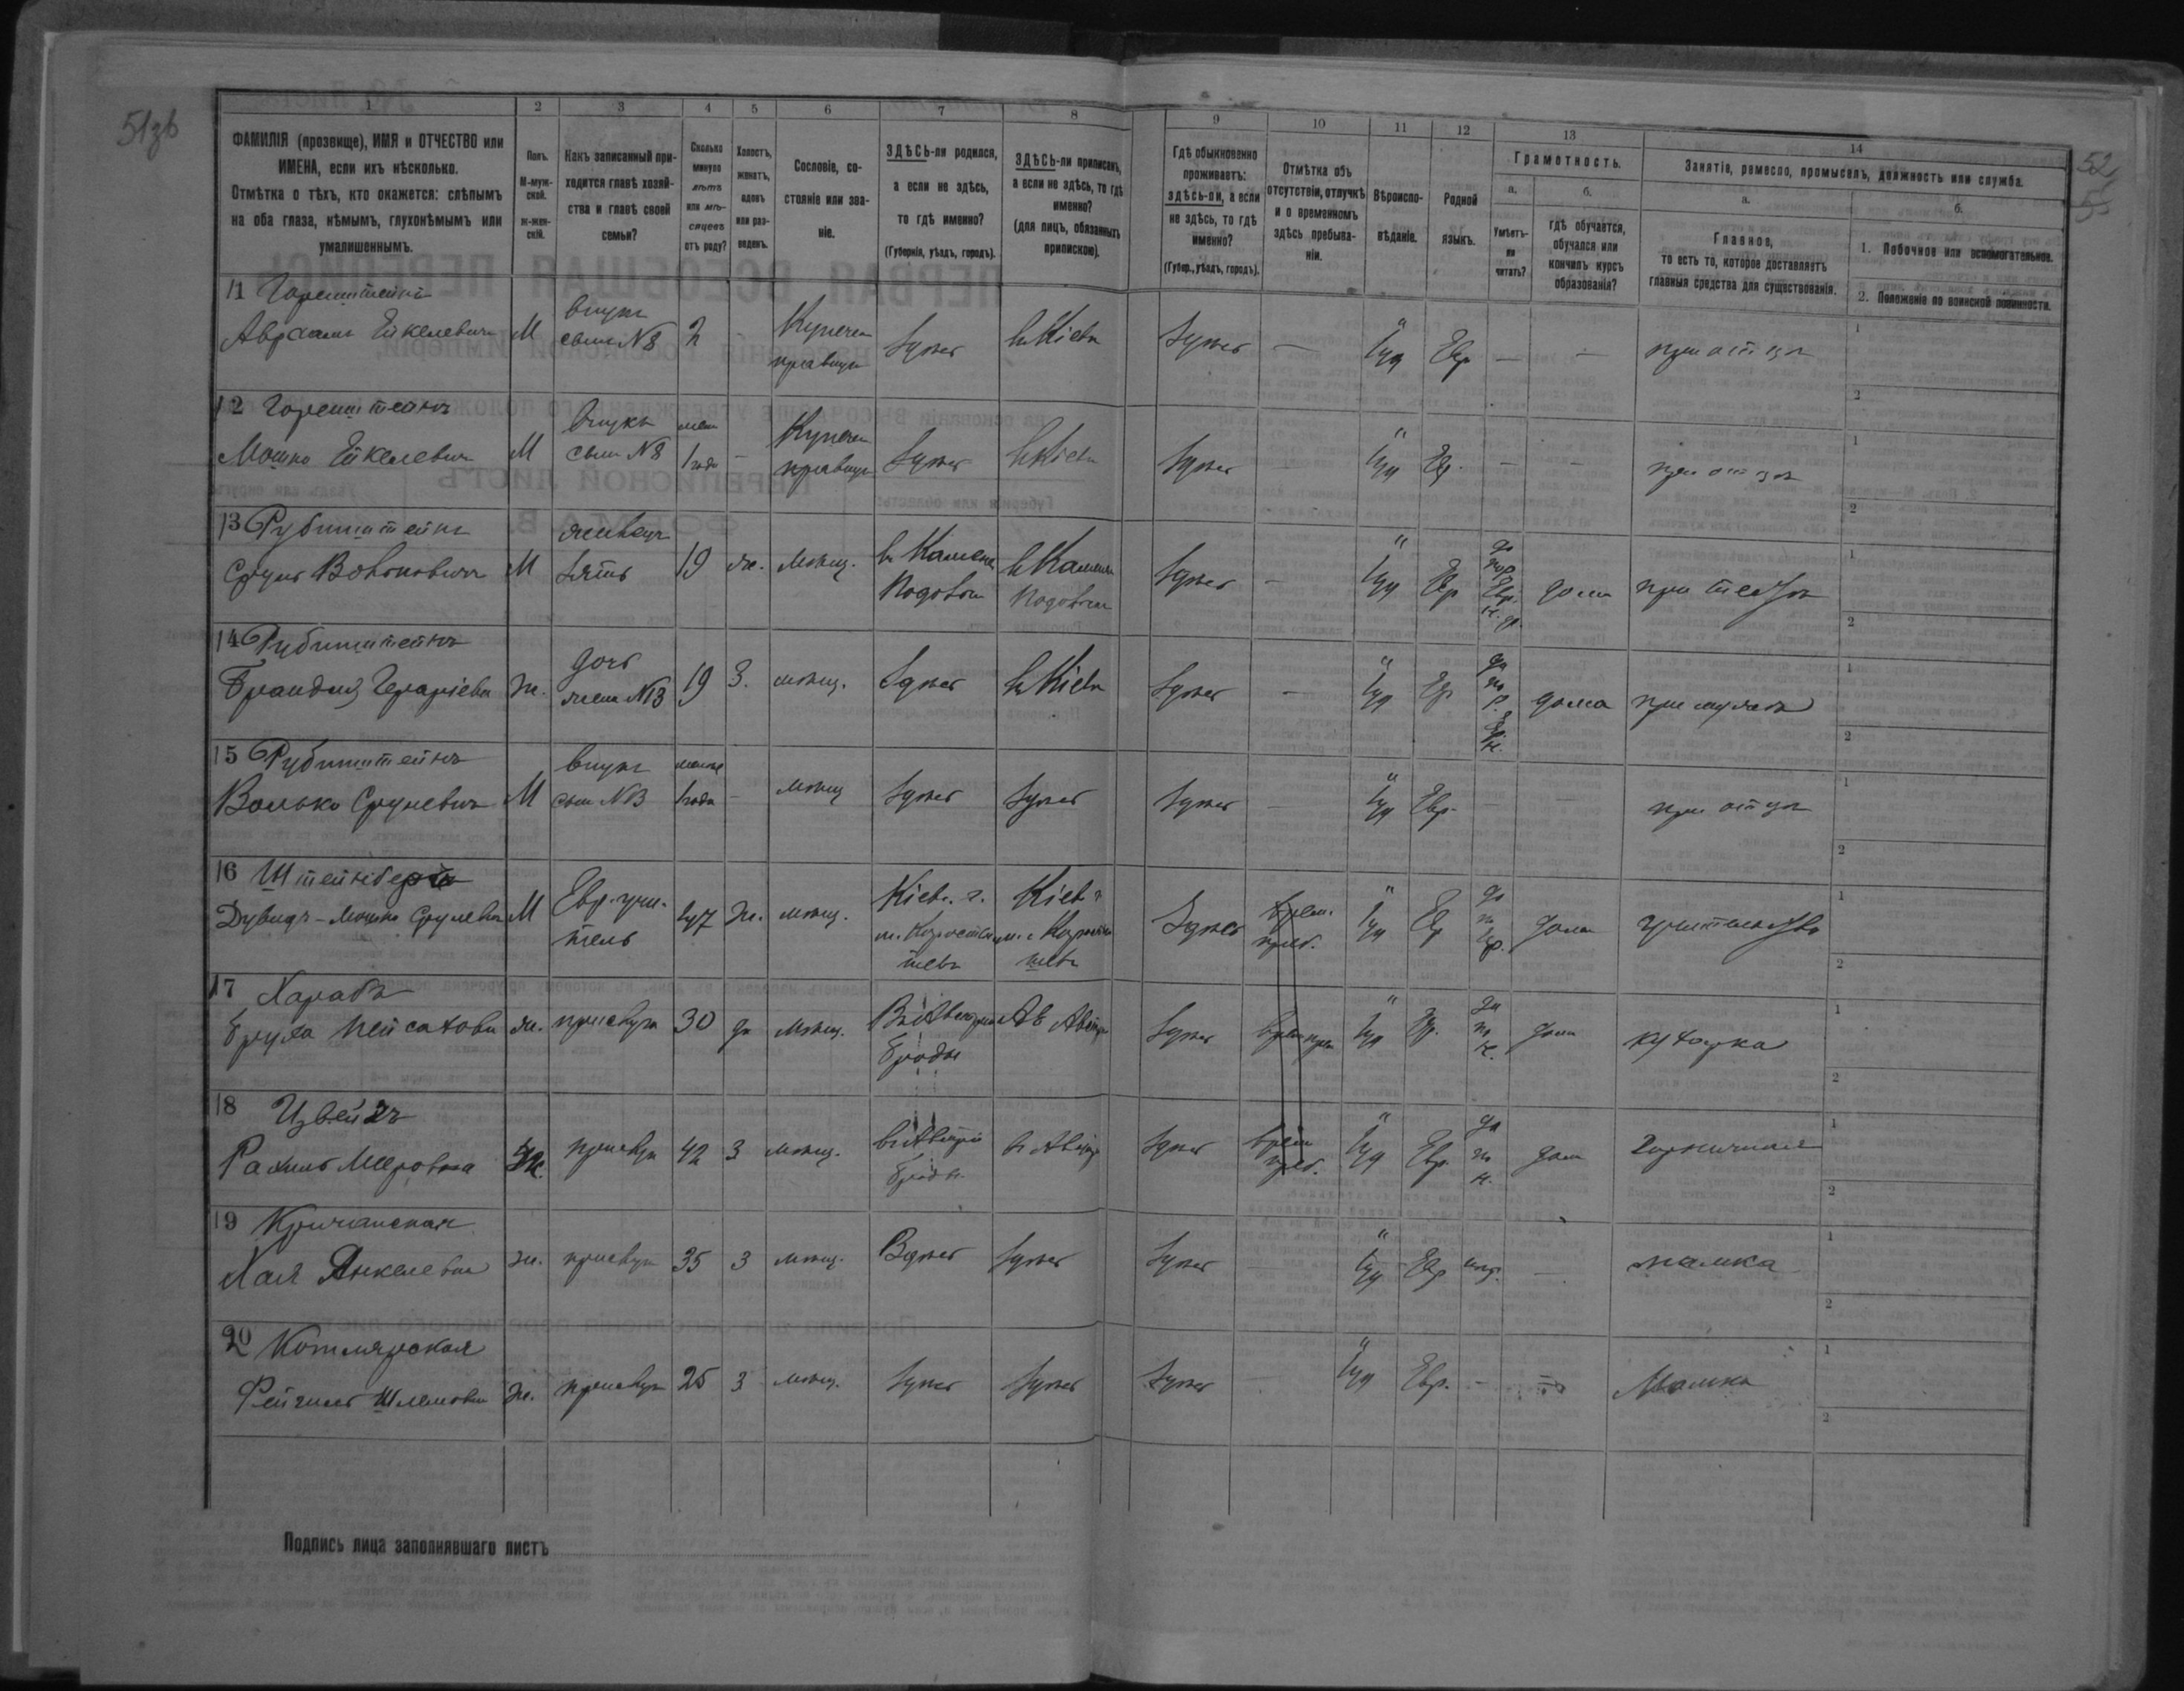 51зв
52
1
2
3
4
5
6
7
8
9
10
11
12
13
14
ФАМИЛІЯ (прозвище), ИМЯ и ОТЧЕСТВО или
ИМЕНА, если ихъ нѣсколько.
Отмѣтка о тѣхъ, кто окажется: слѣпымъ
на оба глаза, нѣмымъ, глухонѣмымъ или
умалишеннымъ.
Полъ.
М-муж-
ской.
ж-жен-
скій.
Какъ записанный при-
ходится главѣ хозяй-
ства и главѣ своей
семьи?
Сколько
минуло
лѣтъ
или мѣ-
сяцевъ
отъ роду?
Холостъ,
женатъ,
вдовъ
или раз-
веденъ.
Сословіе, со-
стояніе или зва-
ніе.
ЗДѢСЬ-ли родился,
а если не здѣсь,
то гдѣ именно?
(Губернія, уѣздъ, городъ).
ЗДѢСЬ-ли приписанъ,
а если не здѣсь, то гдѣ
именно?
(для лицъ, обязанныхъ
припискою).
Гдѣ обыкновенно
проживаетъ:
здѣсь-ли, а если
не здѣсь, то гдѣ
именно?
(Губер., уѣздъ, городъ).
Отмѣтка объ
отсутствіи, отлучкѣ
и о временномъ
здѣсь пребыва-
ніи.
Вѣроиспо-
вѣданіе.
Родной
языкъ.
Грамотность.
а.
Умѣетъ-
ли
читать?
б.
гдѣ обучается,
обучался или
кончилъ курсъ
образованія?
Занятіе, ремесло, промыселъ, должность или служба.
а.
Главное,
то есть то, которое доставляетъ
главныя средства для существованія.
б.
1. Побочное или вспомогательное.
2. Положеніе по воинской повинности.
11 Горенштейнъ
Авраамъ Ейкелевичъ М внукъ сынъ N8 2 - Купеч. правнукъ Здѣсь въ Кіевѣ Здѣсь — Іуд Евр — - при отцѣ
12 Горенштейнъ
Мошко Ейкелевичъ М внукъ сынъ N8 мен 1 года - Купеч. правнукъ Здѣсь въ Кіевѣ Здѣсь - Іуд Евр. - - при отцѣ
13 Рубинштейнъ
Сруль Вольковичъ М зять 19 ж. мѣщ. въ Каменц Подольск въ Каменц Подольск Здѣсь - Іуд Евр да дома при тестѣ
14 Рубинштейнъ
ж. дочь жена N13 19 З. мѣщ. Здѣсь въ Кіевѣ Здѣсь - Іуд Евр да дома при мужѣ
15 Рубинштейнъ
Волько Срулевичъ М внукъ сынъ N13 менѣе 1 года - мѣщ Здѣсь Здѣсь Здѣсь - Іуд Евр. - - при отцѣ
16 Штейнбергъ
Дувидъ-Мошко Срулевъ М Евр. учи-
тель 47 ж. мѣщ. Кіев. г.
м. Коростышевъ Кіев г.
м. Коростышевъ Здѣсь врем. преб. Іуд Евр да дома учительство
17 Харабъ
Бруха Пейсахова ж. прислуга 30 мѣщ. Въ Австріи
Броды Въ Австр Здѣсь Іуд Евр. да дома кухарка
18 Цвейгъ
Рахиль Меровна Ж. прислуга 42 З мѣщ. въ Австріи
Броды въ Австр Здѣсь врем преб. Іуд Евр. да дом горничная
19 Кричанская
Хая Янкелевна ж. прислуга 35 З мѣщ. Здѣсь Здѣсь Здѣсь Іуд Евр — мамка
20 Котлярская
Фейгель Шлемовна ж. прислуга 25 З мѣщ. Здѣсь Здѣсь Здѣсь Іуд Евр. - Мамка
Подпись лица заполнявшаго листъ